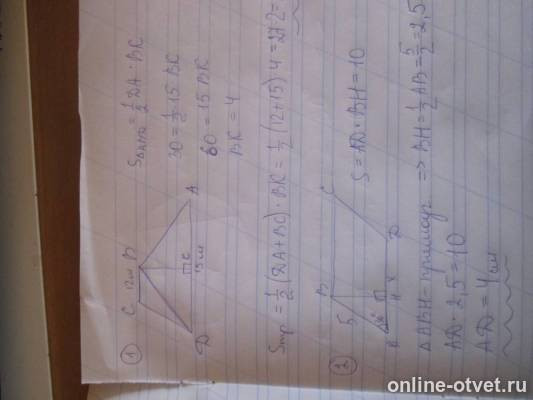 ①
C 12см B
К
15см
D A
S△ABD = 1/2 DA · BK
30 = 1/2 · 15 BK
60 = 15 BK
BK = 4
Sтр = 1/2 (DA + BC) · BK = 1/2 (12 + 15) 4 = 27·2 =
②
B C
5
H D
S = AD · BH = 10
△ABH - прямоуг => BH = 1/2 AB = 5/2 = 2,5
AD · 2,5 = 10
AD = 4 см
online-otvet.ru